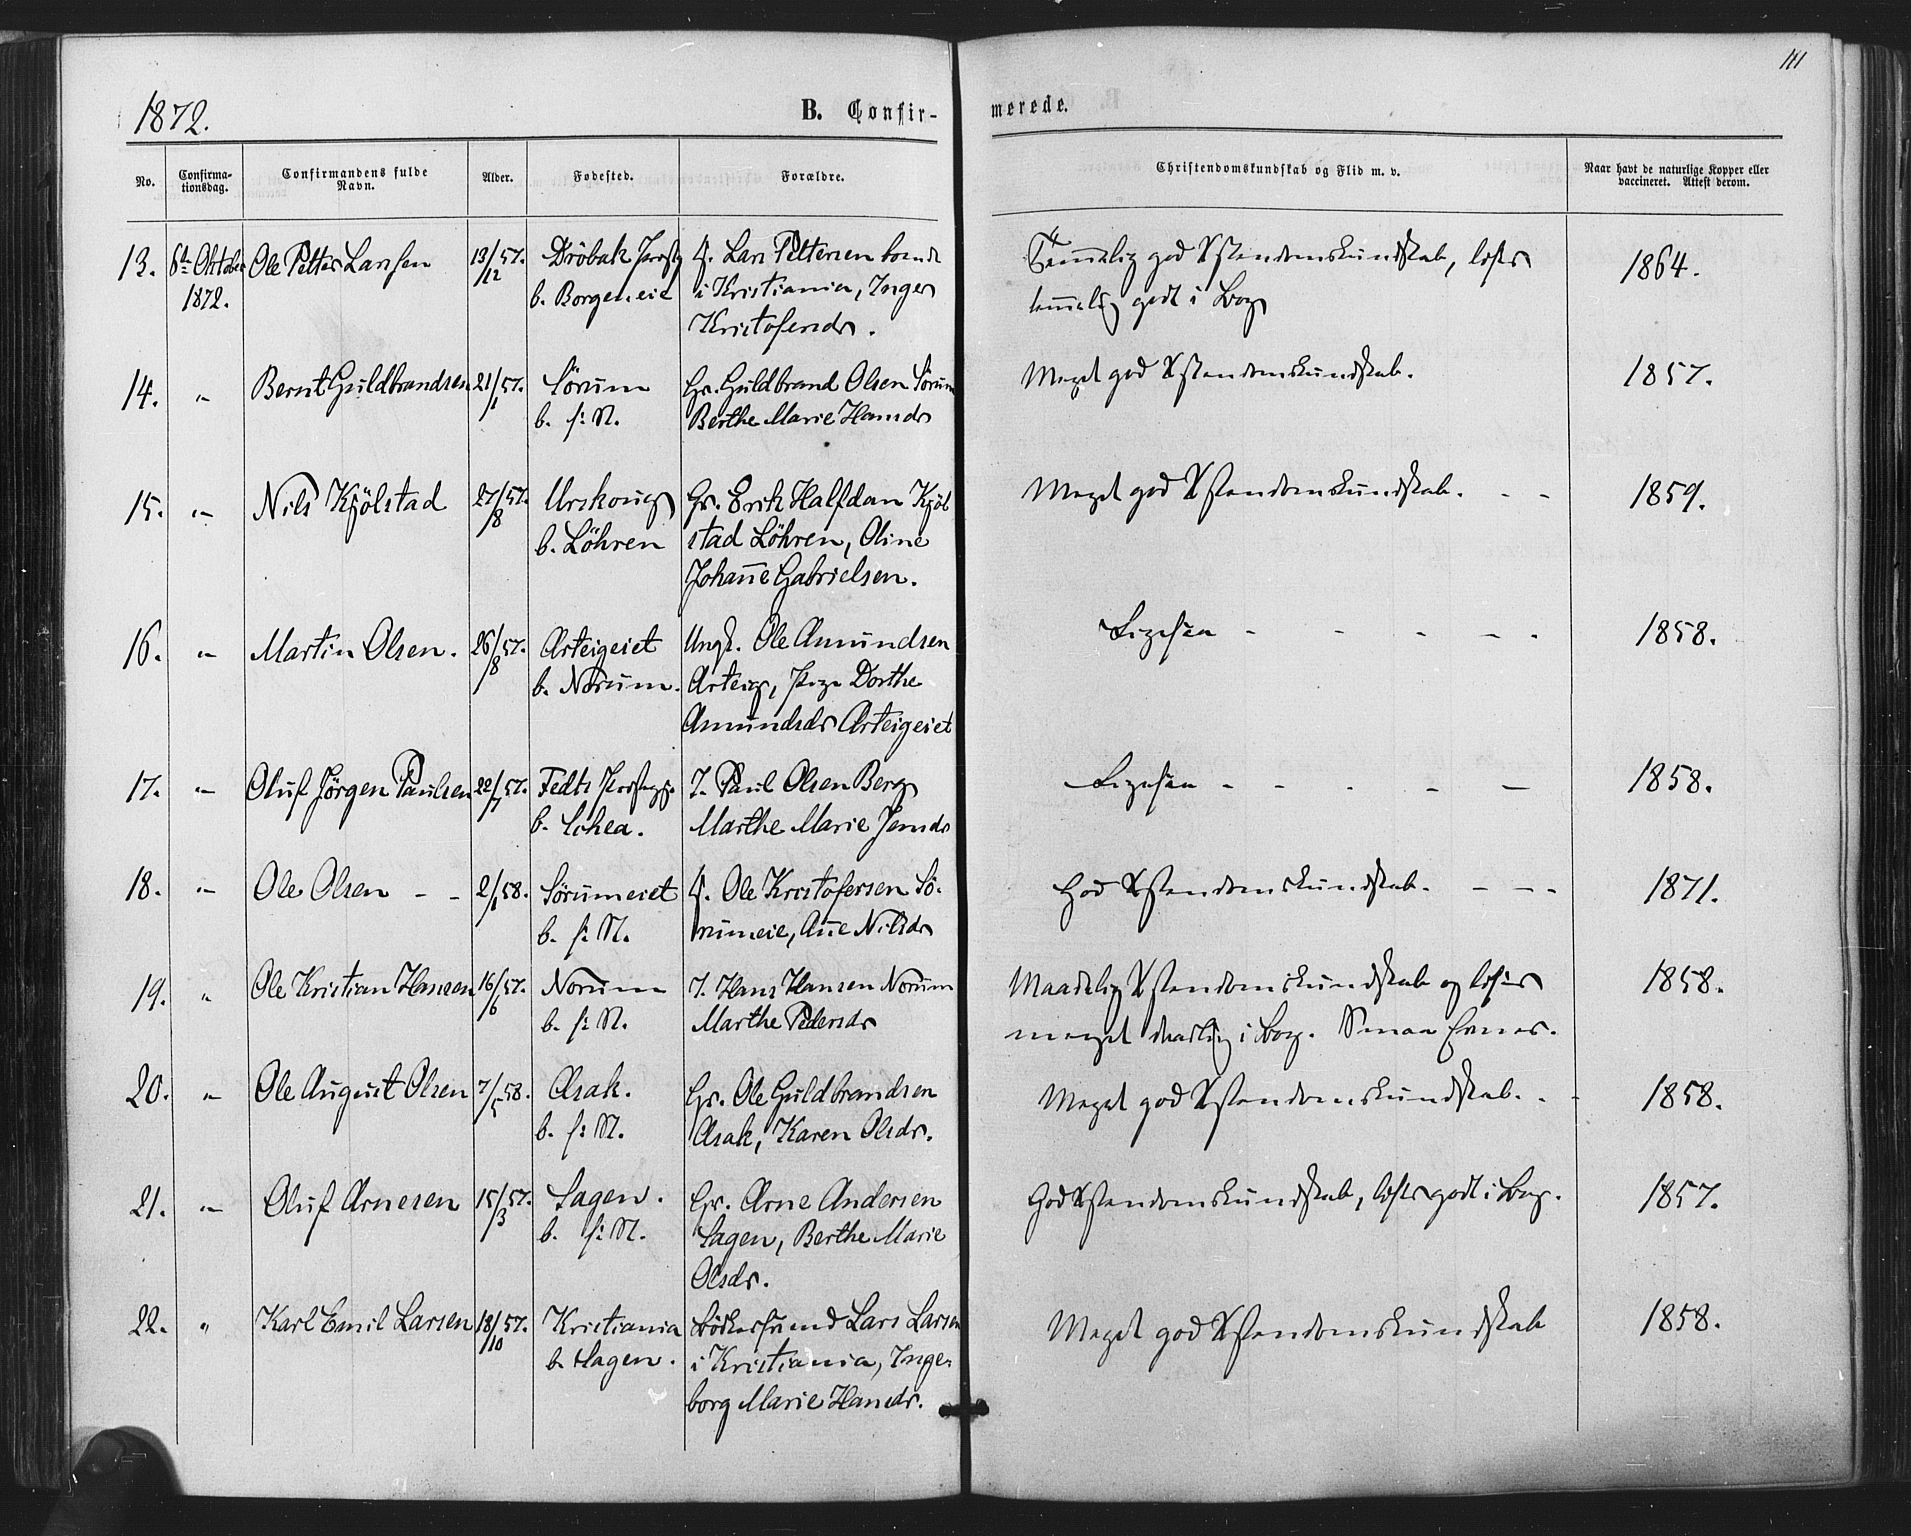 111
1872.
B. Confir-
merede.
No.
Confirma-
tionsdag.
Confirmandens fulde
Navn.
Alder.
Fødested.
Forældre.
Christendomskundskab og Flid m. v.
Naar havt de naturlige Kopper eller
vaccineret. Attest derom.
13. 6te Oktober Ole Petter Larsen 13/12 57. Dröbak
1872. b. Borgeneie
Lars Pettersen
i Kristiania, Inger
Kristofersdr.
Temmelig god Xstendomskundskab, læser
temmelig godt i Bog
1864.
14. " Bernt Guldbrandsen 21/1 57. Sörum
b. s: St.
Gr. Guldbrand Olsen Sörum
Berthe Marie Hansdr
Meget god Xstendomskundskab.
1857.
15. " Nils Kjölstad 27/8 57. Urskoug
b. Löhren
Gr. Erik Halfdan Kjöl
stad Löhren, Oline
Johanne Gabrielsen.
Meget god Xstendomskundskab. - -
1859.
16. " Martin Olsen. 26/8 57. Arteigeiet
b. Norum.
Ungk. Ole Amundsen
Arteig, Pige Dorthe
Amundsdr Arteigeiet
Ligesaa - - - - -
1858.
17. " Oluf Jörgen Paulsen 22/7 57. Fedts
b.
I. Paul Olsen Berg
Marthe Marie Jensdr
Ligesaa - - - - -
1858.
18. " Ole Olsen - - 2/1 58. Sörumeiet
b. s: St.
Ole Kristofersen Sö-
rumeie, Anne Nilsdr
God Xstendomskundskab. - - -
1871.
19. " Ole Kristian Hansen 16/6 57. Norum
b. s: St.
I. Hans Hansen Norum
Marthe Pedersdr
Maadelig Xstendomskundskab og læser
meget daarlig i Bog. Smaa Evner.
1858.
20. " Ole August Olsen 7/5 58. Asak.
b. s: St.
Gr. Ole Guldbrandsen
Asak, Karen Olsdr.
Meget god Xstendomskundskab. - -
1858.
21. " Oluf Arnesen 15/3 57. Sagen.
b. s: St.
Gr. Arne Andersen
Sagen, Berthe Marie
Olsdr.
God Xstendomskundskab, læser godt i Bog.
1857.
22. " Karl Emil Larsen 18/10 57. Kristiania
b. Sagen.
Bödkersvend Lars Larsen
i Kristiania, Inge-
borg Marie Hansdr.
Meget god Xstendomskundskab
1858.